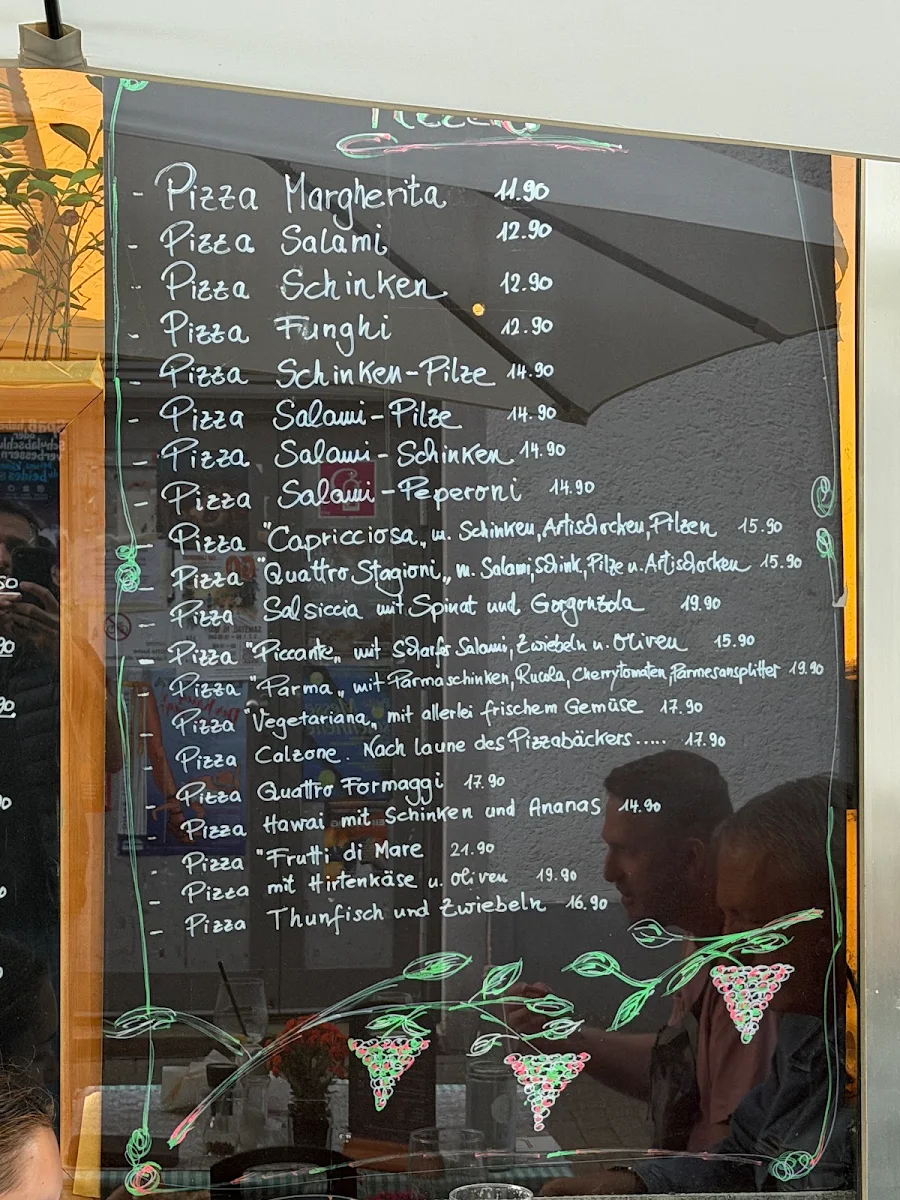 - Pizza Margherita 11.90
- Pizza Salami 12.90
- Pizza Schinken 12.90
- Pizza Funghi 12.90
- Pizza Schinken-Pilze 14.90
- Pizza Salami-Pilze 14.90
- Pizza Salami-Schinken 14.90
- Pizza Salami-Peperoni 14.90
- Pizza "Capricciosa„ m. Schinken, Artischocken, Pilzen 15.90
- Pizza "Quattro Stagioni„ m. Salami, Schink, Pilze u. Artischocken 15.90
- Pizza Salsiccia mit Spinat und Gorgonzola 19.90
- Pizza "Piccante„ mit Scharfer Salami, Zwiebeln u. Oliven 15.90
- Pizza "Parma„ mit Parmaschinken, Rucola, Cherrytomaten, Parmesansplitter 19.90
- Pizza "Vegetariana„ mit allerlei frischem Gemüse 17.90
- Pizza Calzone. Nach laune des Pizzabäckers..... 17.90
- Pizza Quattro Formaggi 17.90
- Pizza Hawai mit Schinken und Ananas 14.90
- Pizza "Frutti di Mare 21.90
- Pizza mit Hirtenkäse u. oliven 19.90
- Pizza Thunfisch und Zwiebeln 16.90